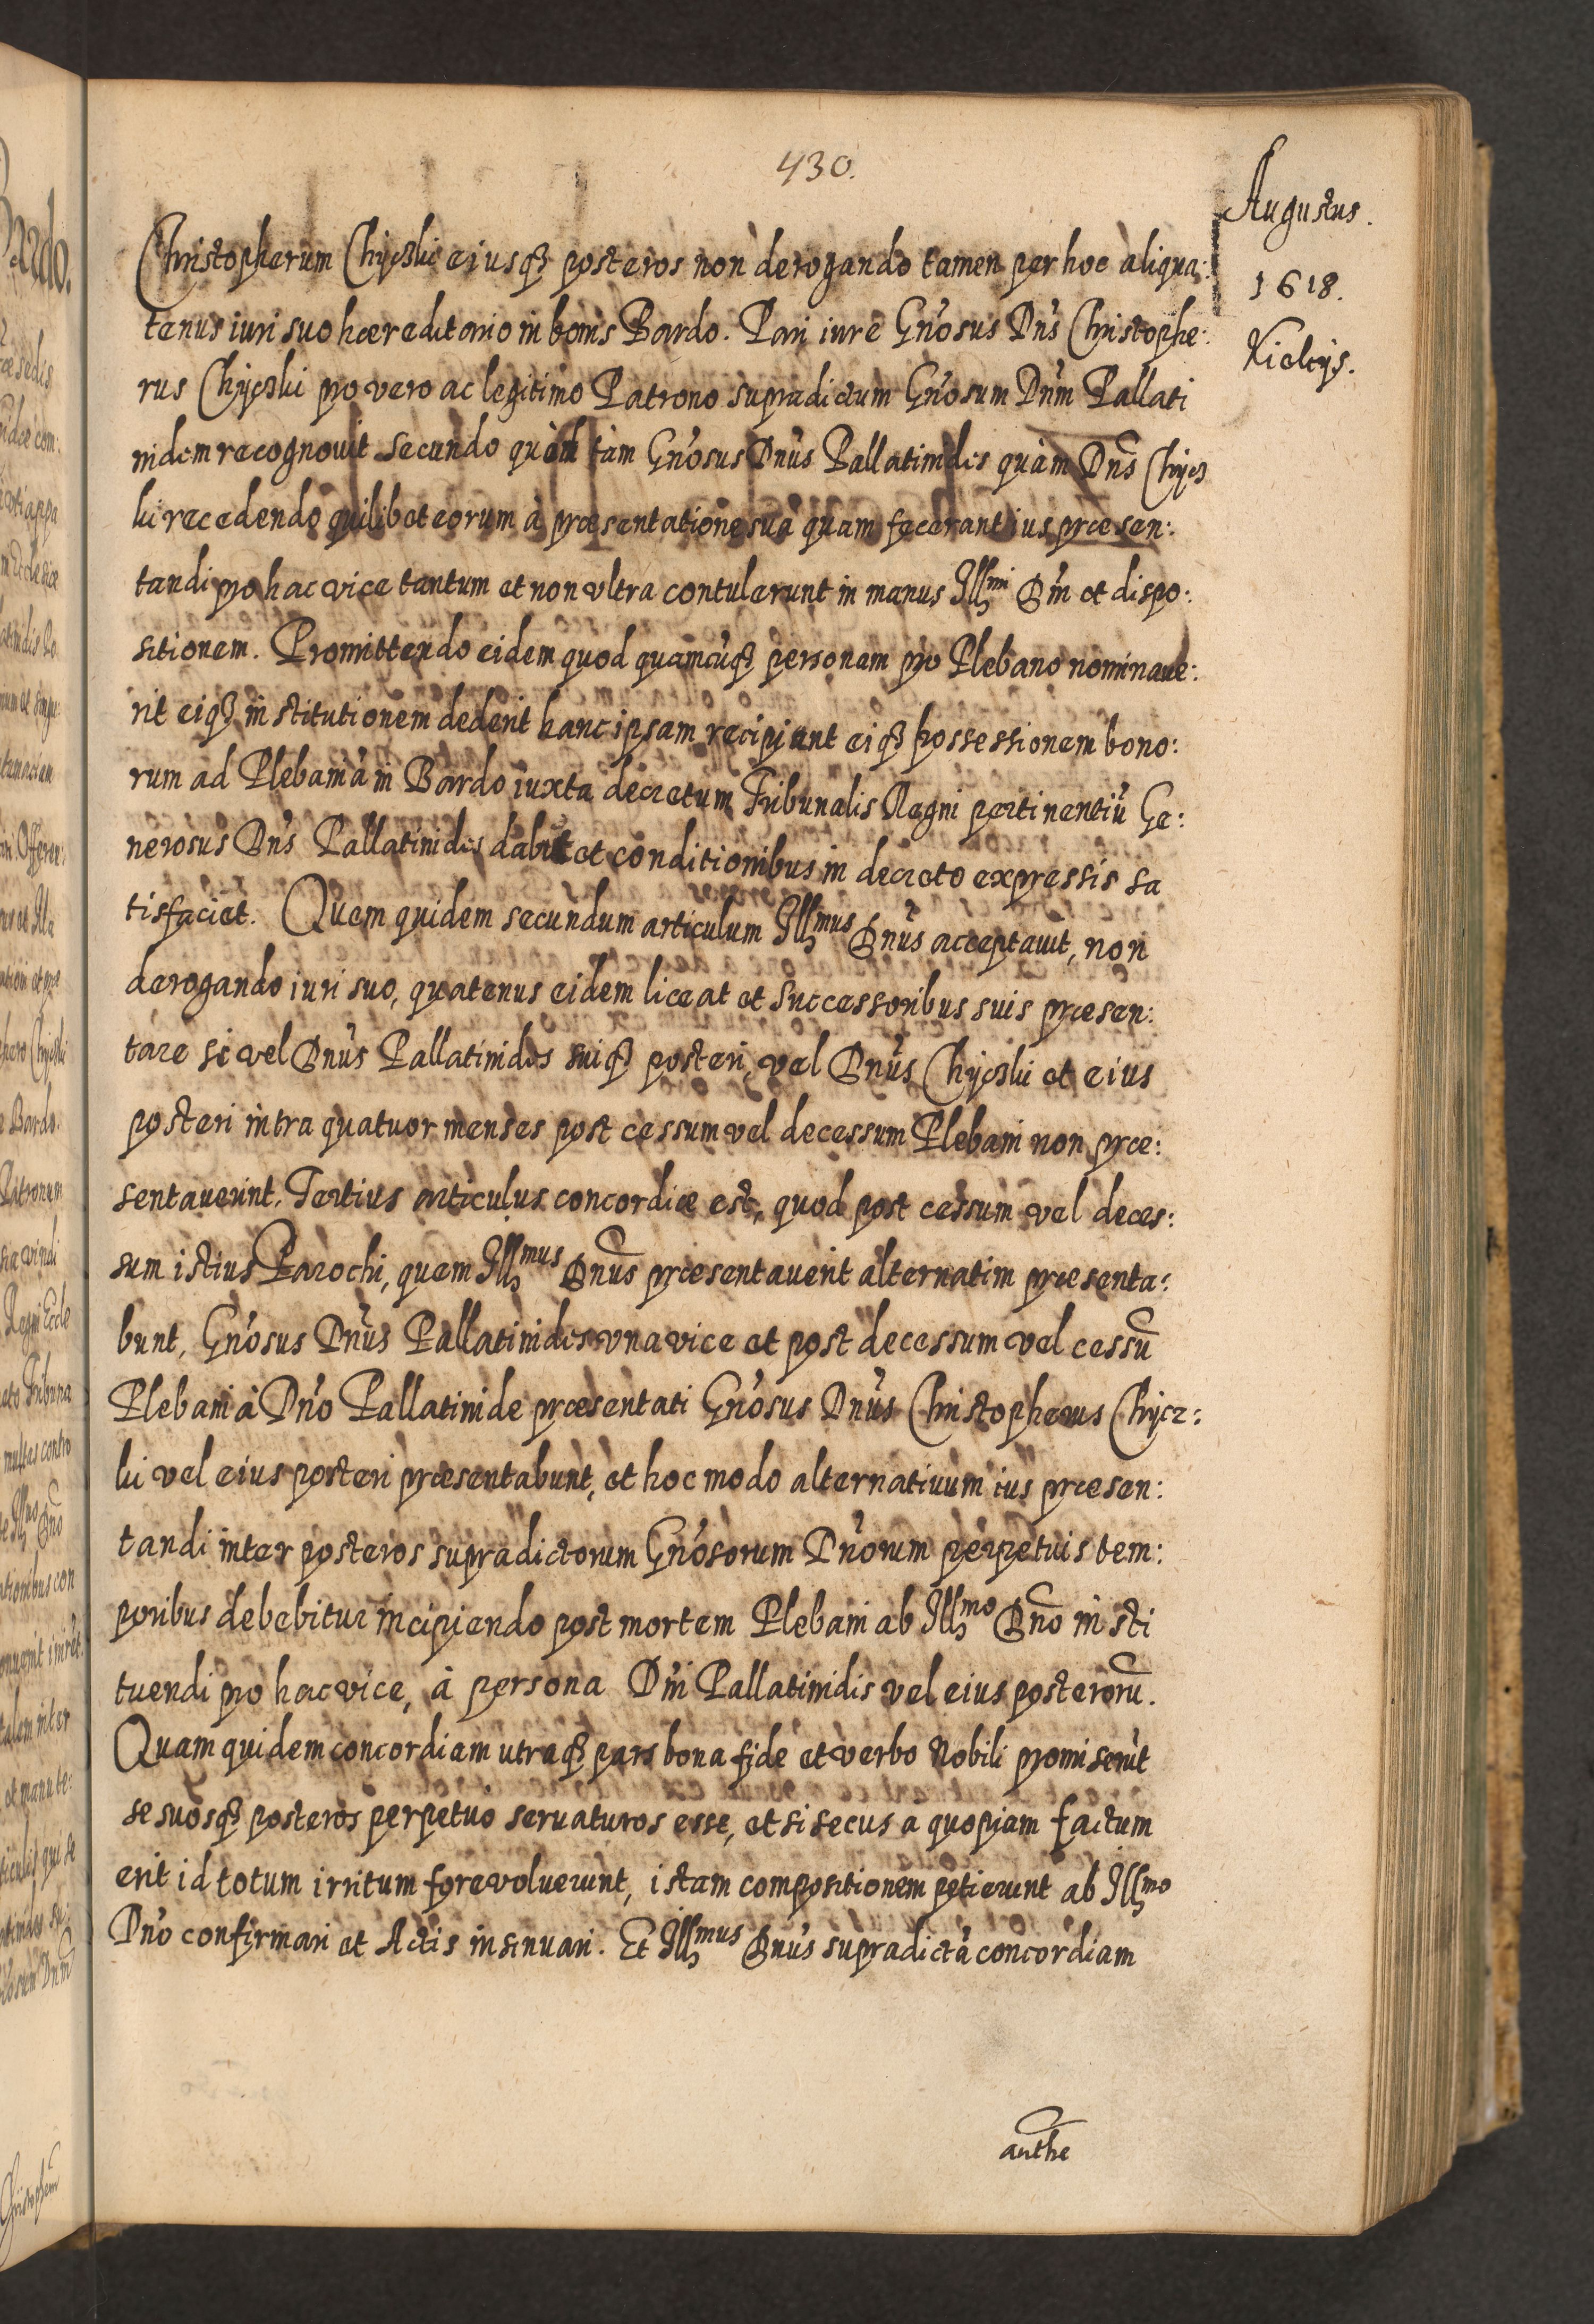 430.
Augustus.
1618.
Kielcijs.
Christopherum Chijczki eiusq3 posteros non derogando tamen per hoc aliqua:
tenus iuri suo hæreditario in bonis Bardo. Pari iure Gn̄osus Dn̄s Christophe:
rus Chijczki pro vero ac legitimo Patrono supradictum Gn̄osum Dn̄m Pallati
nidem recognouit secundo quòd tàm Gn̄osus Dn̄us Pallatinides quàm Dn̄s Chijcz
ki recedendo quilibet eorum à præsentatione sua quam fecerant ius præsen:
tandi pro hac vice tantum et non vltra contulerunt in manus Illmi Dn̄i et dispo:
sitionem. Promittendo eidem quod quamcūq3 personam pro Plebano nominaue:
rit eiq3 institutionem dederit hanc ipsam recipient eiq3 possessionem bono:
rum ad Plebaniā in Bardo iuxta decretum Tribunalis Regni pertinentiū Ge:
nerosus Dn̄s Pallatinides dabit et conditionibus in decreto expressis sa
tisfaciet. Quem quidem secundum articulum Illmus Dn̄us acceptauit, non
derogando iuri suo, quatenus eidem liceat et Successoribus suis præsen:
tare si vel Dn̄us Pallatinides suiq3 posteri, vel Dn̄us Chijczki et eius
posteri intra quatuor menses post cessum vel decessum Plebani non præ:
sentauerint. Tertius articulus concordiæ est, quod post cessum vel deces:
sum istius Parochi, quem Illmus Dn̄us præsentauerit alternatim præsenta:
bunt, Gn̄osus Dn̄us Pallatinides vna vice et post decessum vel cessū
Plebani à Dn̄o Pallatinide præsentati Gn̄osus Dn̄us Christopherus Chijcz:
ki vel eius posteri præsentabunt, et hoc modo alternatiuum ius præsen:
tandi inter posteros supradictorum Gn̄osorum Dn̄orum perpetuis tem:
poribus debebitur incipiendo post mortem Plebani ab Illmo Dn̄o insti
tuendi pro hac vice, à persona Dn̄i Pallatinidis vel eius posterorū.
Quam quidem concordiam utraq3 pars bona fide et verbo Nobili promiserūt
se suosq3 posteros perpetuo seruaturos esse, et si secus a quopiam factum
erit id totum irritum fore voluerunt, istam compositionem petierunt ab Illmo
Dn̄o confirmari et Actis insinuari. Et Illmus Dn̄us supradictā concordiam
authe